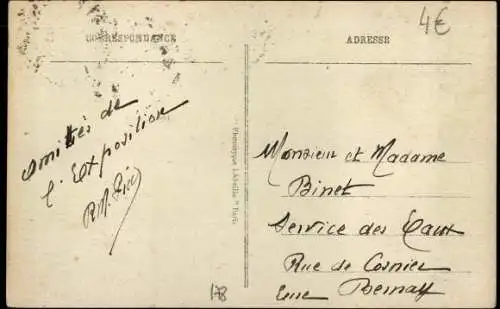 CORRESPONDANCE
amitiés de
l'Exposition
ADRESSE
4€
Monsieur et Madame
Binet
Service des Eaux
Rue de Cornier
Eure Bernay
178